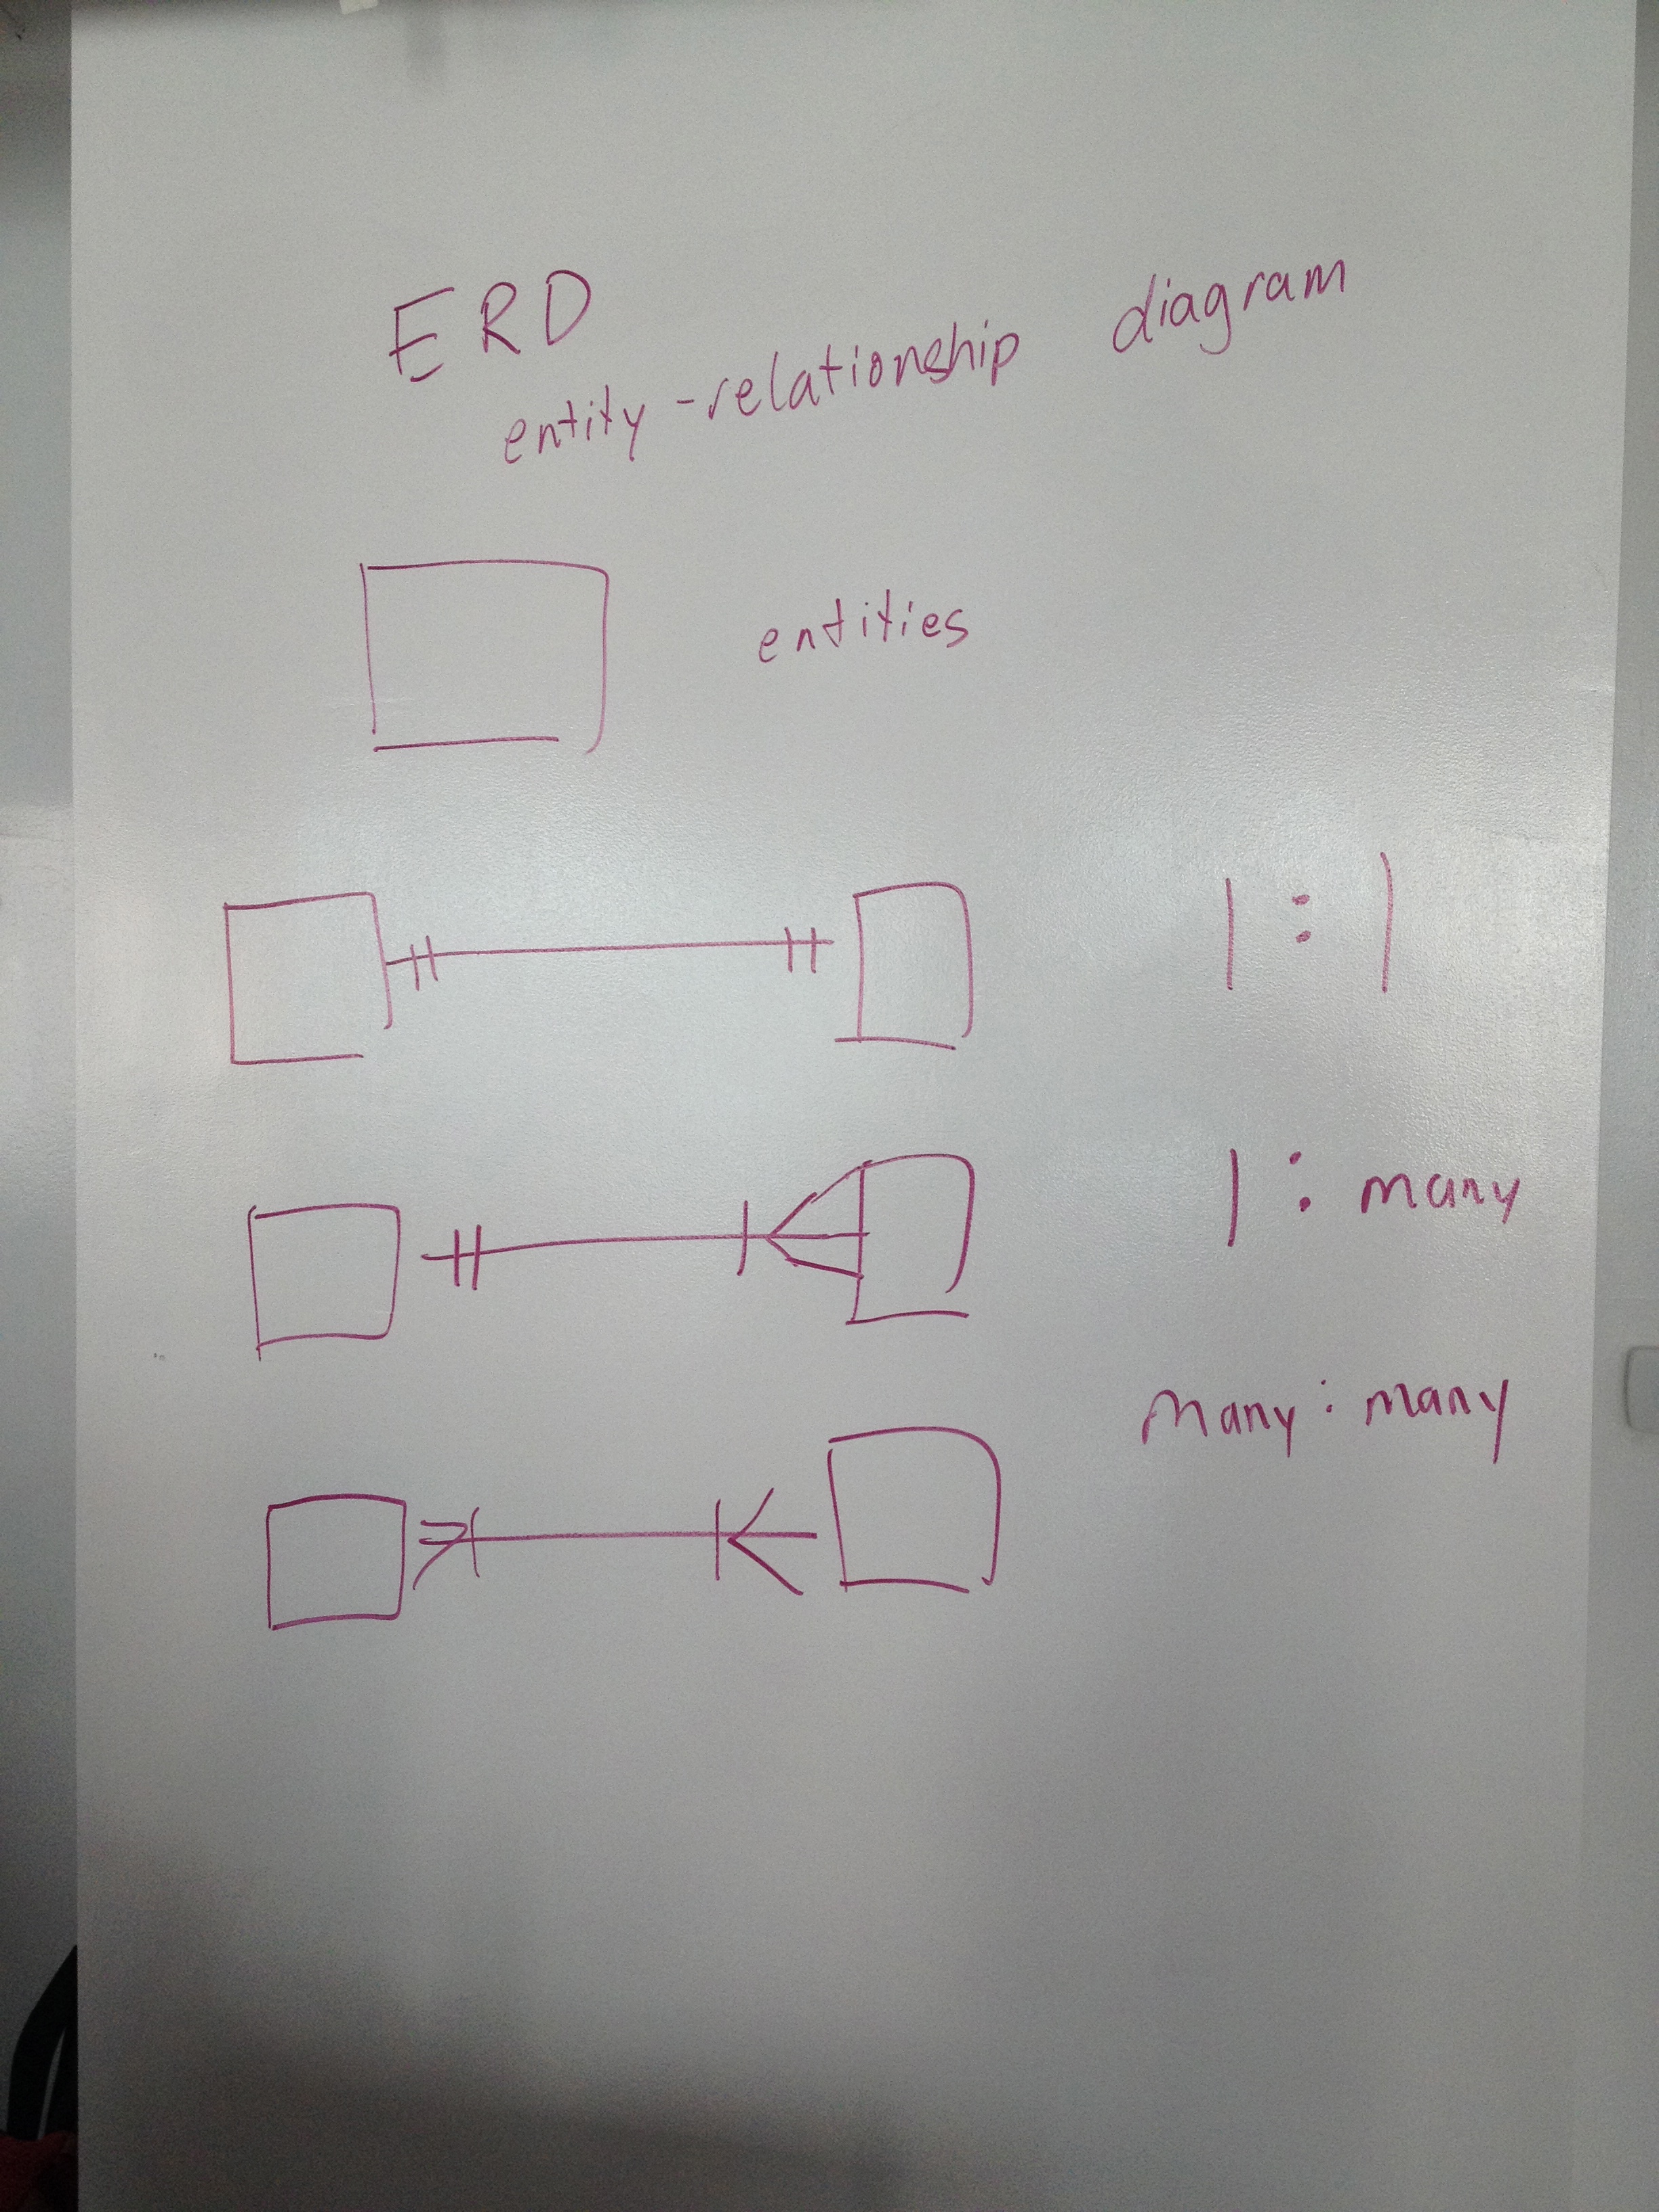 ERD
entity-relationship diagram
entities
1:1
1: many
many: many